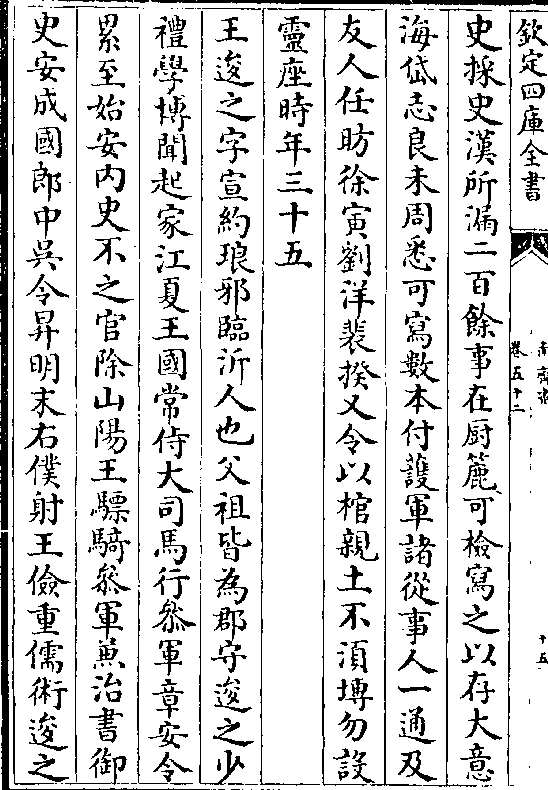 欽定四庫全書
南齊書
卷五十二
十五
史採史漢所漏二百餘事在厨簏可檢寫之以存大意
海岱志良未周悉可寫數本付護軍諸從事人一通及
友人任昉徐寅劉洋裴揆又令以棺親土不湏塼勿設
靈座時年三十五
王逡之字宣約琅邪臨沂人也父祖皆為郡守逡之少
禮學博聞起家江夏王國常侍大司馬行叅軍章安令
累至始安内史不之官除山陽王驃騎叅軍兼治書御
史安成國郎中吳令昇明末右僕射王儉重儒術逡之